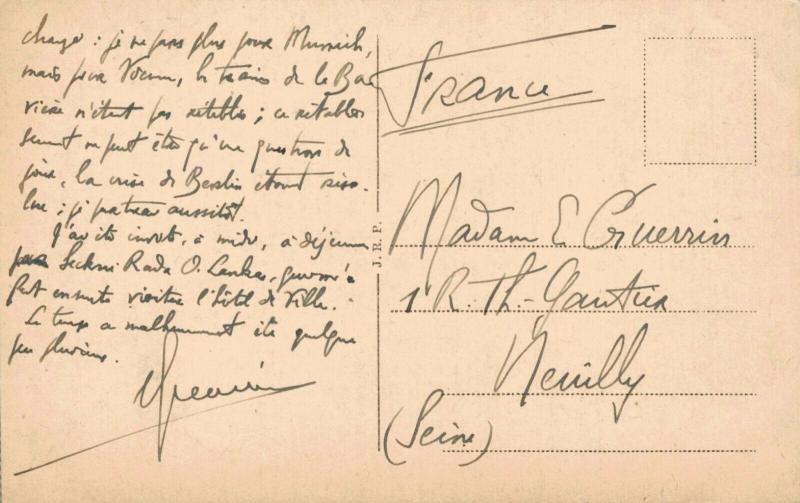 changé : je ne pars plus pour Munich,
mais pour Vienne, les trains de la Ba-
vière n'étant pas rétablis ; ce rétablis
sement ne peut être qu'une question de
jours, la crise de Berlin étant réso-
lue ; je partirai aussitôt.
J'ai été invité, à midi, à déjeuner
par Rada O. Lanka, qui m'a
fait ensuite visiter l'Hôtel de Ville.
Le temps a malheureusement été quelque
peu pluvieux.
J.R.P.
France
Madame E Guerrin
1 R. Th. Gautier
Neuilly
(Seine)